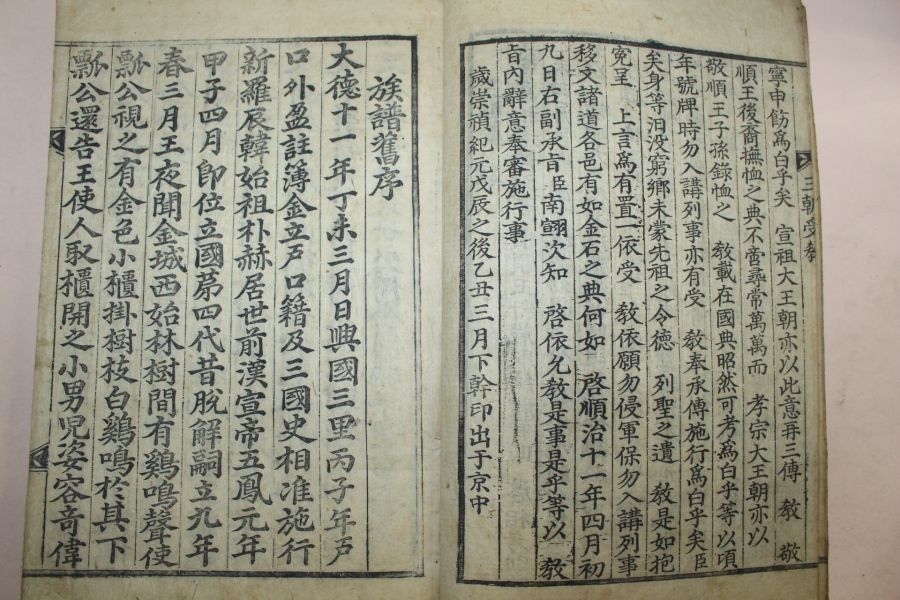 寧申飭爲白乎矣 宣祖大王朝亦以此意再三傳 教 敬
順王後裔撫恤之典不啻尋常萬萬而 孝宗大王朝亦以
敬順王子孫錄恤之 教載在國典昭然可考爲白乎等以項
年號牌時勿入講列事亦有受 教奉承傳施行爲白乎矣臣
矣身等汨没窮鄉未蒙先祖之令德 列聖之遺 教是如抱
寃呈 上言爲有置一依受 教依願勿侵軍保勿入講列事
移文諸道各邑有如金石之典何如 啓順治十一年四月初
九日右副承旨臣南翧次知 啓依允教是事是乎等以 教
旨內辭意奉審施行事
歲崇禎紀元戊辰之後乙丑三月下幹印出于京中
三朝受教
族譜舊序
大德十一年丁未三月日興國三里丙子年戶
口外盈註簿金立戶口籍及三國史相准施行
新羅辰韓始祖朴赫居世前漢宣帝五鳳元年
甲子四月即位立國苐四代昔脫解嗣立九年
春三月王夜聞金城西始林樹間有鷄鳴聲使
瓢公視之有金色小櫃掛樹枝白鷄鳴於其下
瓢公還告王使人取櫃開之小男兒姿容奇偉